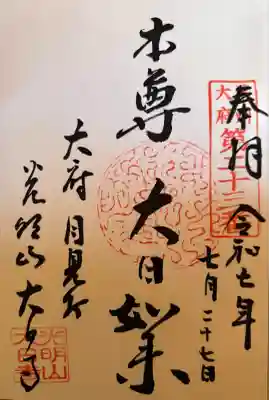 奉拝 令和七年
七月二十七日
大府第二十二番
本尊 大日如来
大府 月見不
光明山 大日寺
光明山
大日寺